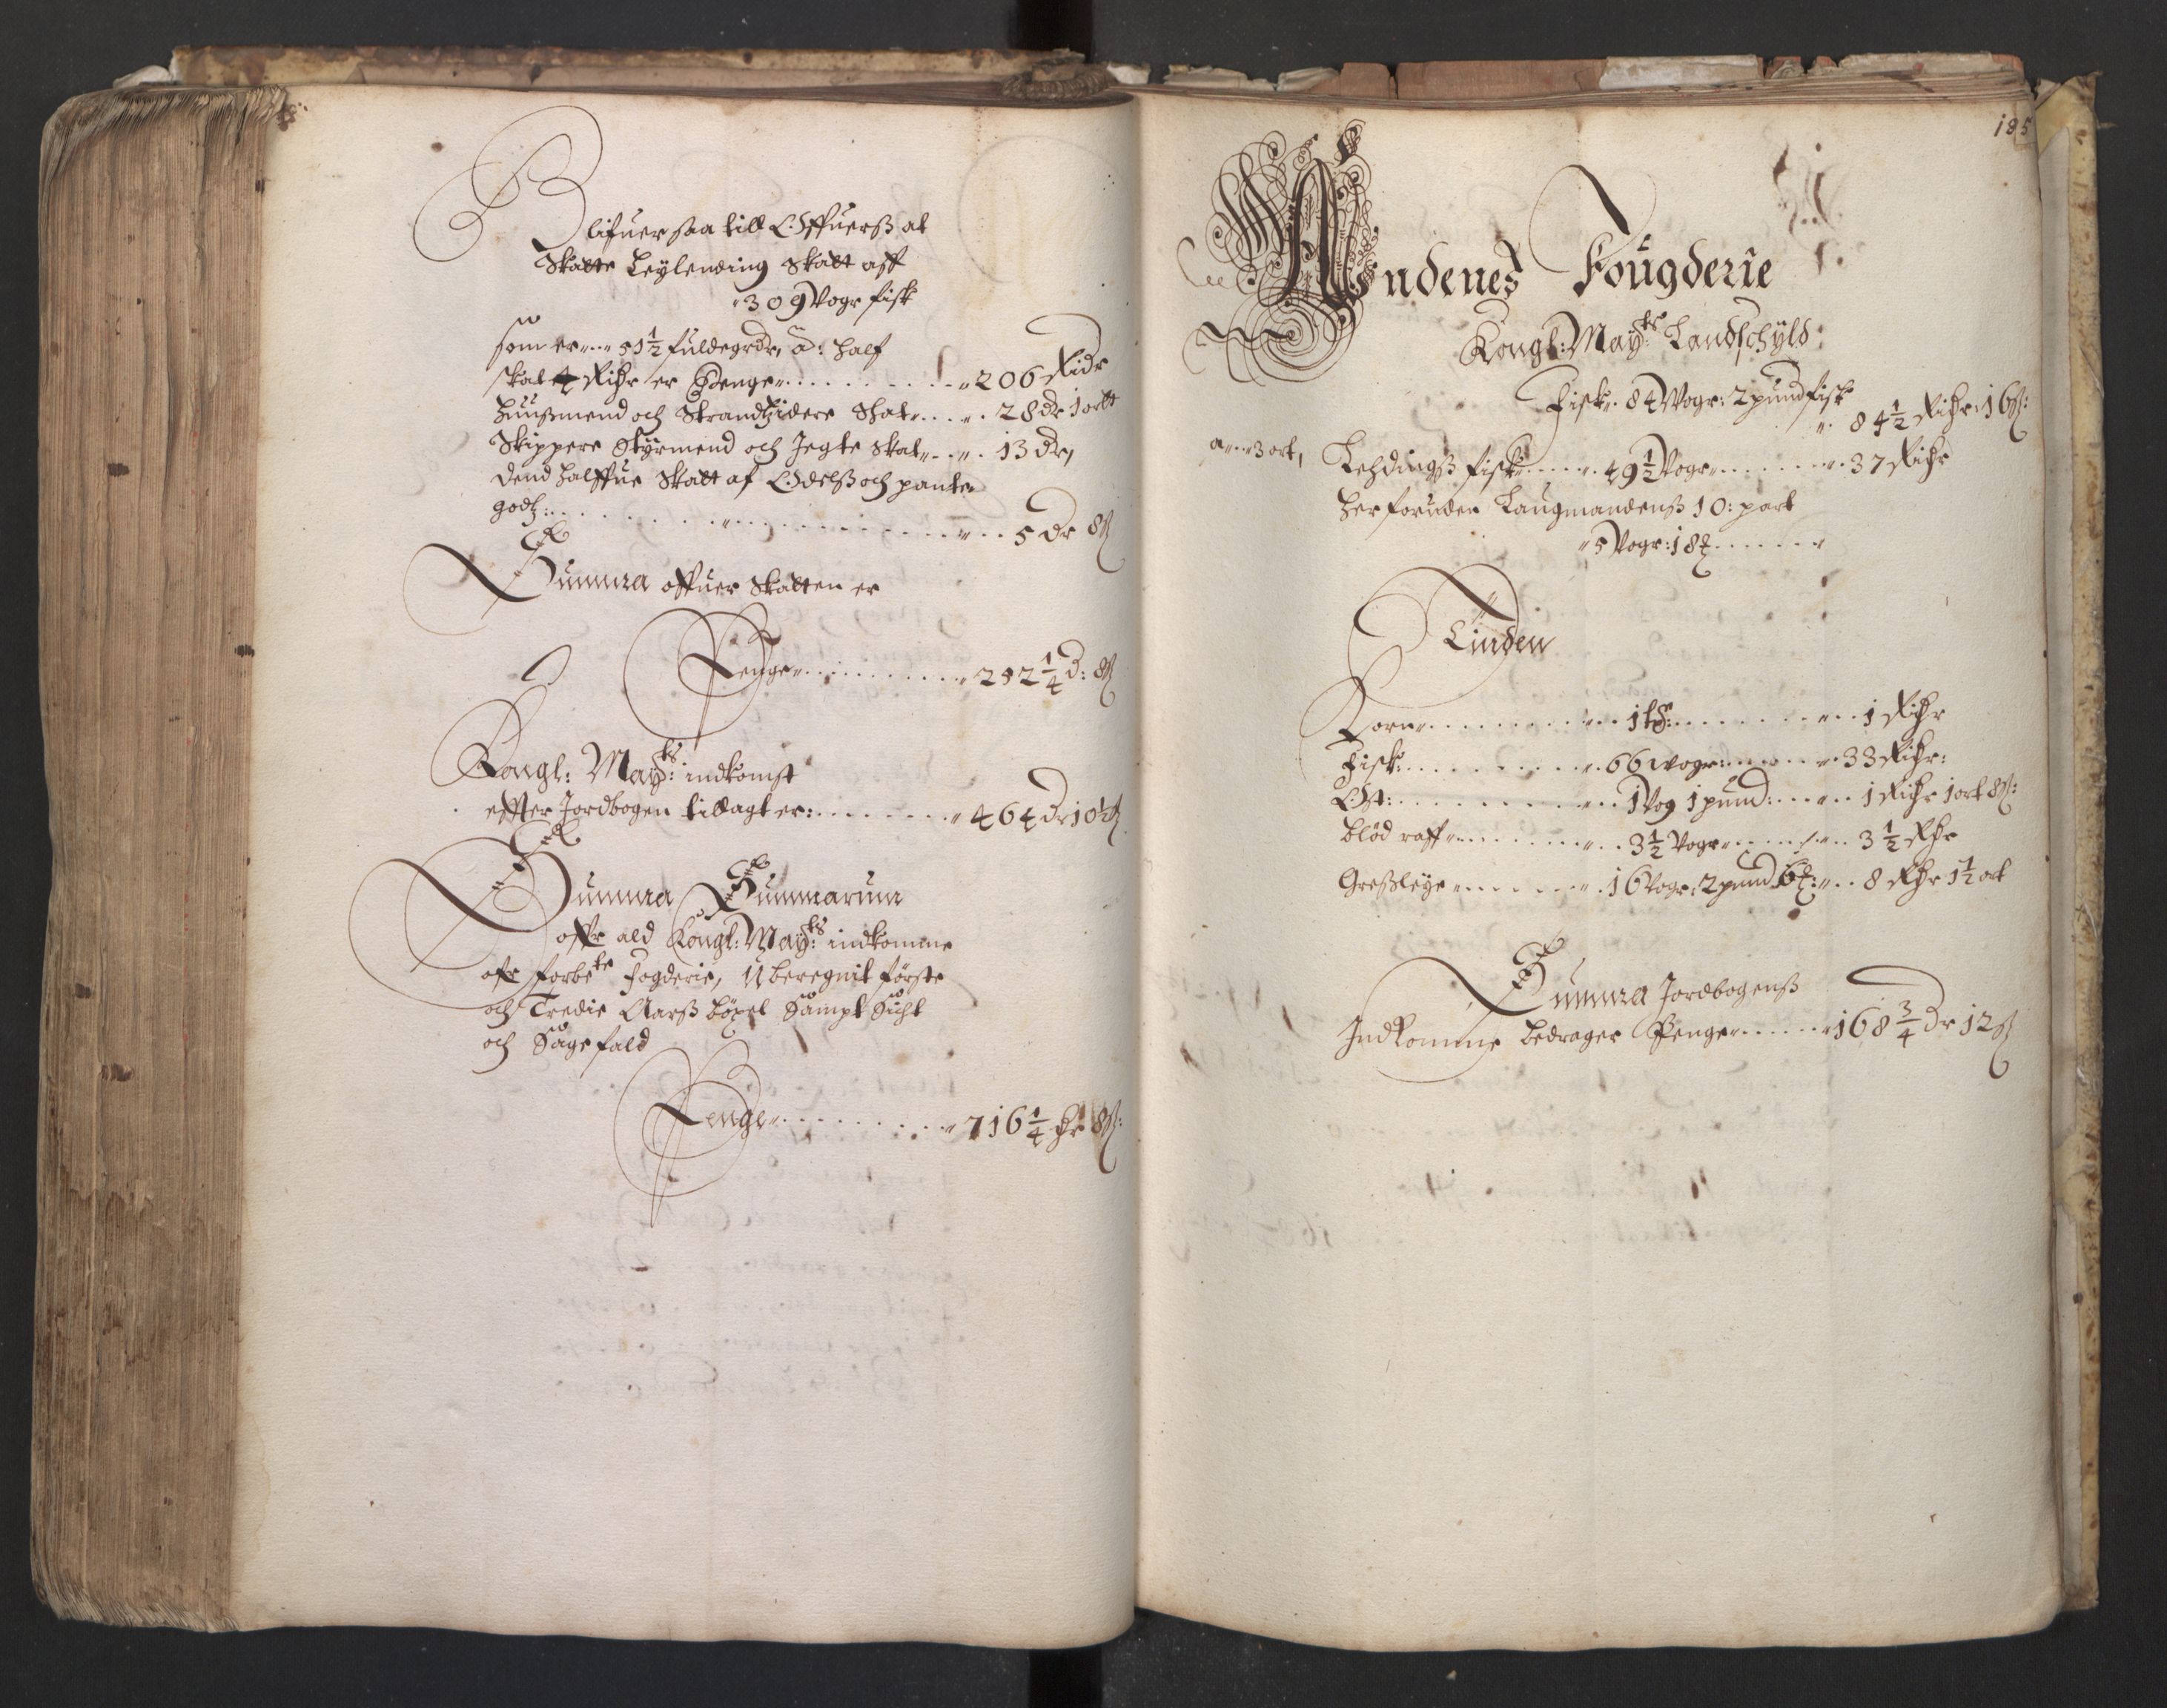 Blifuer saa till Offuerß at
Skatte Leylending Skatt aff
309 Vogr fisk
som er 51½ fuldegrdr, a: half
skat 4 Richr er Penge 206 Ridr
Huußmend och Strandsidere Skat 28 dr 1 ortt
Skippere Styrmend och Jegte skat 13 dr,
Dend halffue Skatt af Odelß och pante
godtz: 5 dr 8 ß
Summa offuer Skatten er
Penge 252¼ d: 8 ß
Kongl: May:ts indkomst
effter Jordbogen tillagt er: 464 dr 10½ ß
Summa Summarum
offr ald Kongl: May:ts indkomme
afr forbete fogderie, Uberegnit förste
och Tredie Aarß böxel Sampt Sicht
och Sagefald
Penge 716¼ hr 8 ß:
185
Andenes Fougderie
Kongl: May:ts Landschyld:
Fisk 84 Vogr: 2 pund fisk
84½ Richr: 16 ß:
a 3 ort,
Lehdingß fisk 49½ Vogr 37 Richr
Herforuden Laugmandenß 10: part
5 Vogr: 18 ℔
Tinden
Korn 1 tß: 1 Richr
Fisk: 66 vogr: 33 Richr:
Ost: 1 Vog 1 pund: 1 Richr 1 ort 8 ß:
blöd raff 3½ Vogr 3½ Rhr
Greßleye 16 Vogr: 2 pund 6 ℔: 8 Rhr 1½ ort
Summa Jordbogenß
Indkomme bedrager Penge 168¾ dr 12 ß